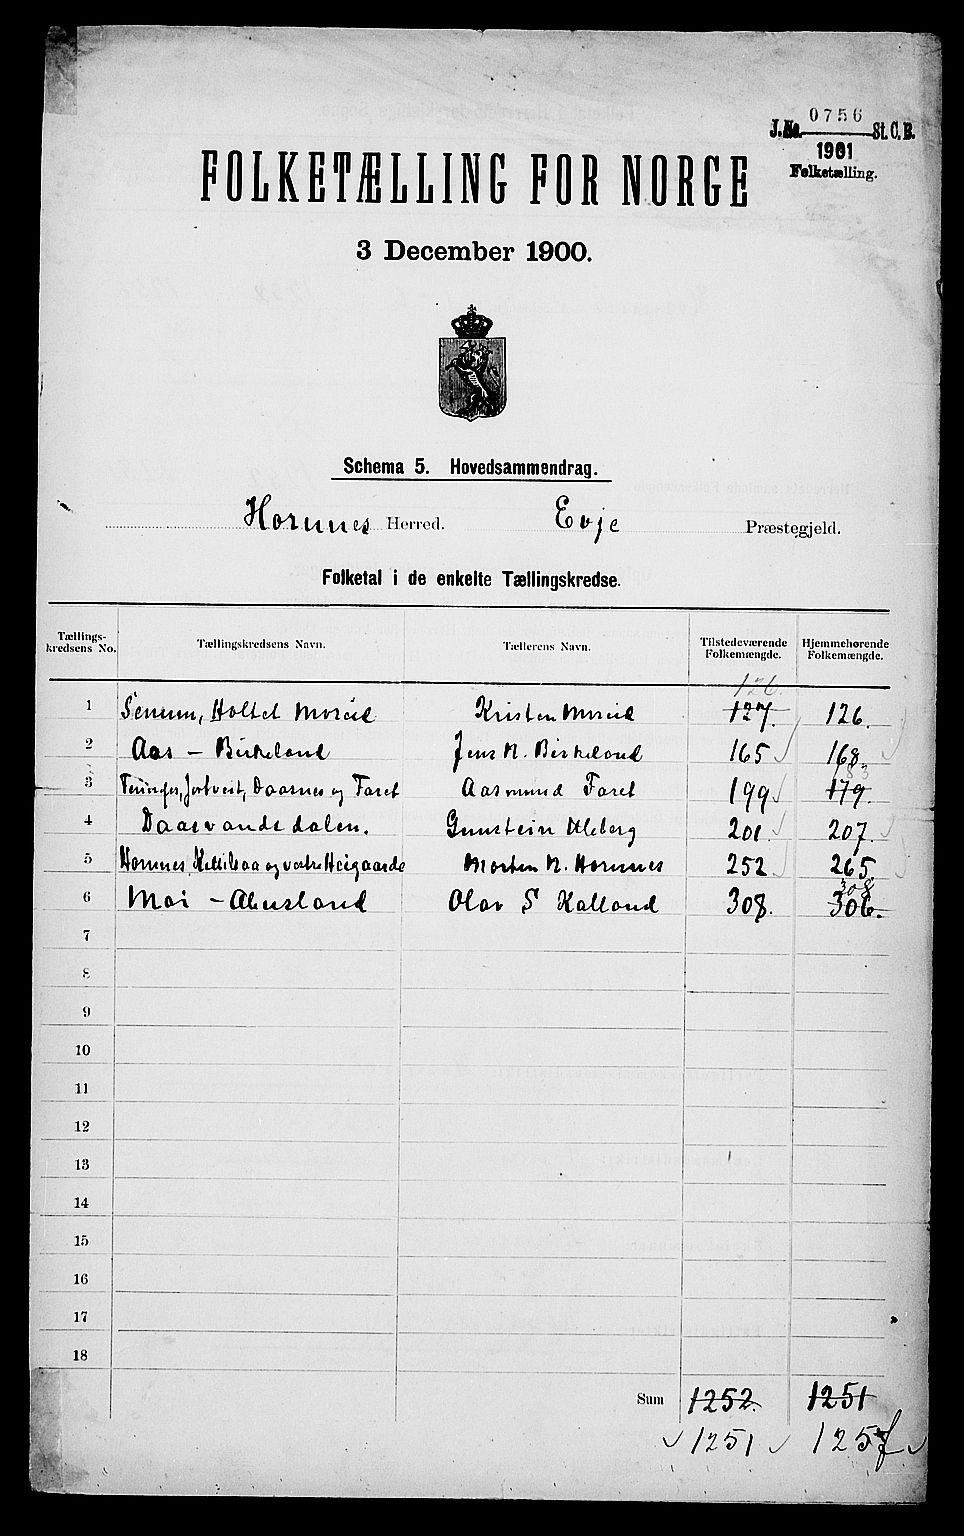 J.No. 0756 St. C. B.
1901
Folketælling.
FOLKETÆLLING FOR NORGE
3 December 1900.
Schema 5. Hovedsammendrag.
Hornnes Herred. Evje Præstegjeld.
Folketal i de enkelte Tællingskredse.
Tællings-kredsens No. Tællingskredsens Navn. Tællerens Navn. Tilstedeværende Folkemængde. Hjemmehørende Folkemængde.
126.
1 Senum, Holtet Moseid Kristen Moseid 127. 126.
2 Aas - Birkeland Jens N. Birkeland 165 168.
83
3 Daasnes og Faret Aasmund Faret 199 179.
4 Daasvandsdalen. Gunstein Uleberg 201. 207.
5 Hornnes, Kjetilsaa og vestre Heigaarde Morten N. Hornnes 252. 265.
308
6 Moi - Abusland Olav S Kalland 308. 306.
7
8
9
10
11
12
13
14
15
16
17
18
Sum 1252. 1251
1251 1257